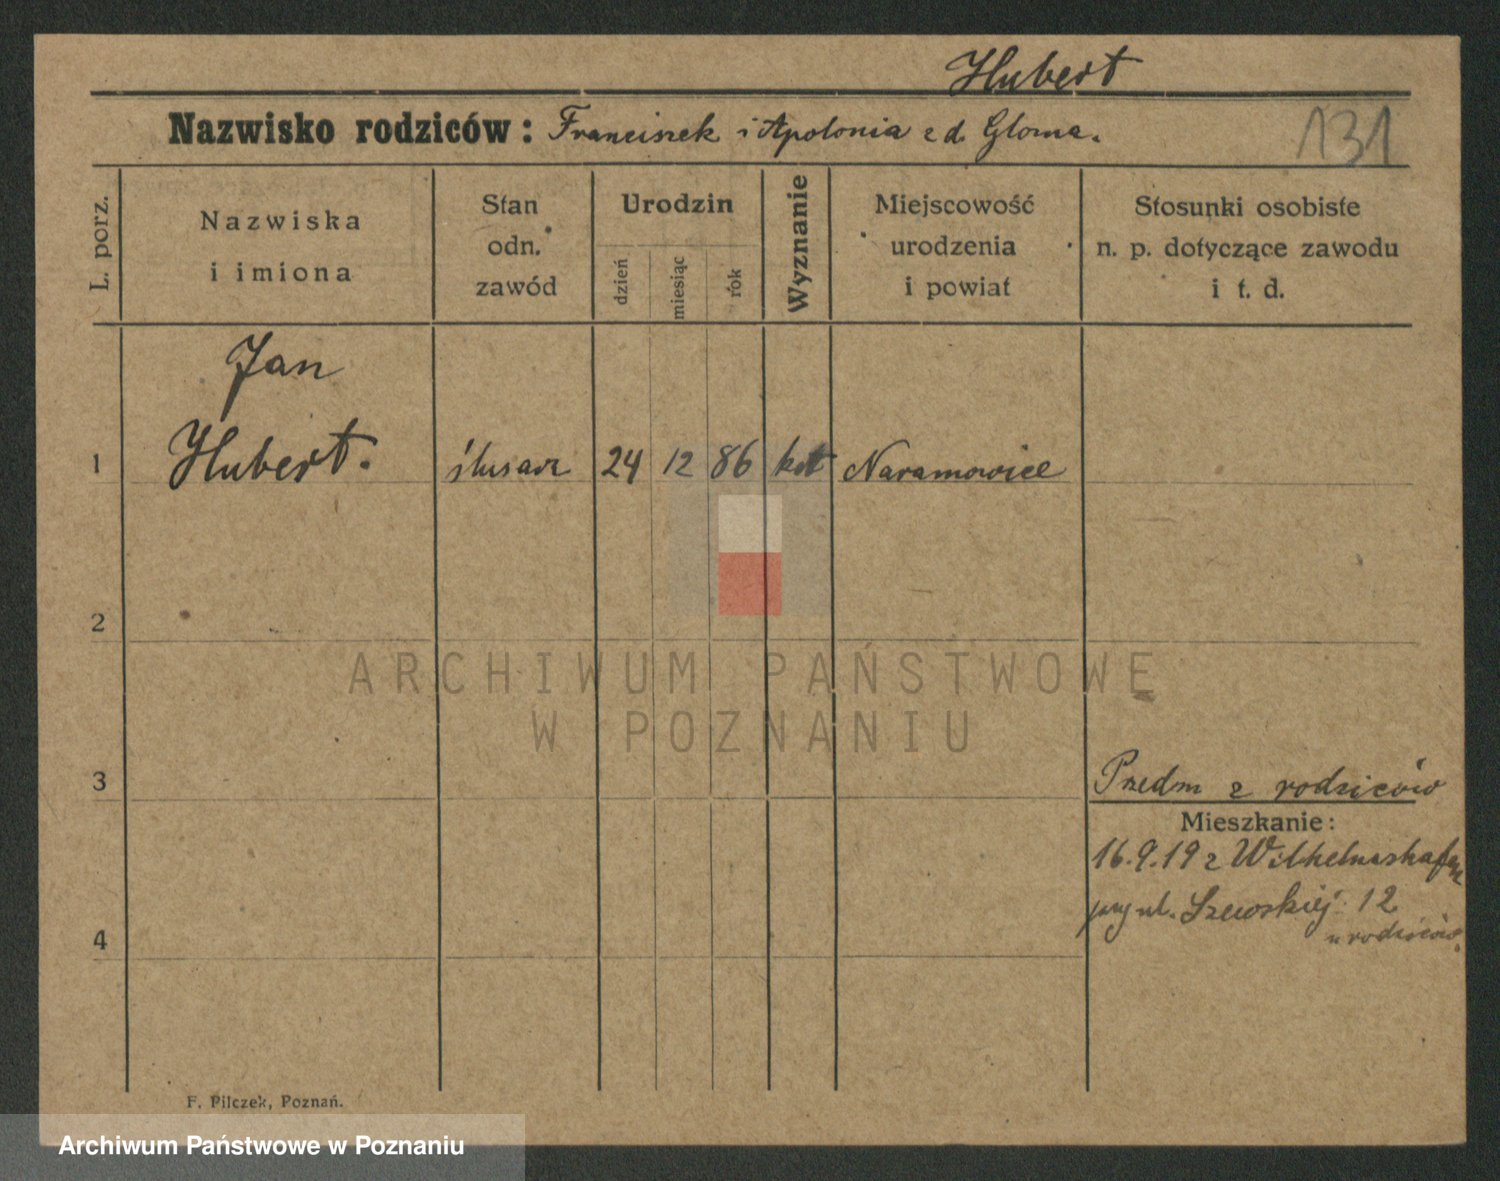 Hubert
Nazwisko rodziców: Franciszek i Apolonia z d. Gloma.
131
L. porz.
Nazwiska
i imiona
Stan
odn.
zawód
Urodzin
dzień
miesiąc
rok
Wyznanie
Miejscowość
urodzenia
i powiat
Stosunki osobiste
n. p. dotyczące zawodu
i t. d.
Jan
1 Hubert. ślusarz 24 12 86 kat Naramowice
2
ARCHIWUM PAŃSTWOWE
W POZNANIU
3
Przedm z rodziców
Mieszkanie:
16.9.19 z Wilhelmshafen
przy ul. Szewskiej 12
4
u rodziców.
F. Pilczek, Poznań.
Archiwum Państwowe w Poznaniu